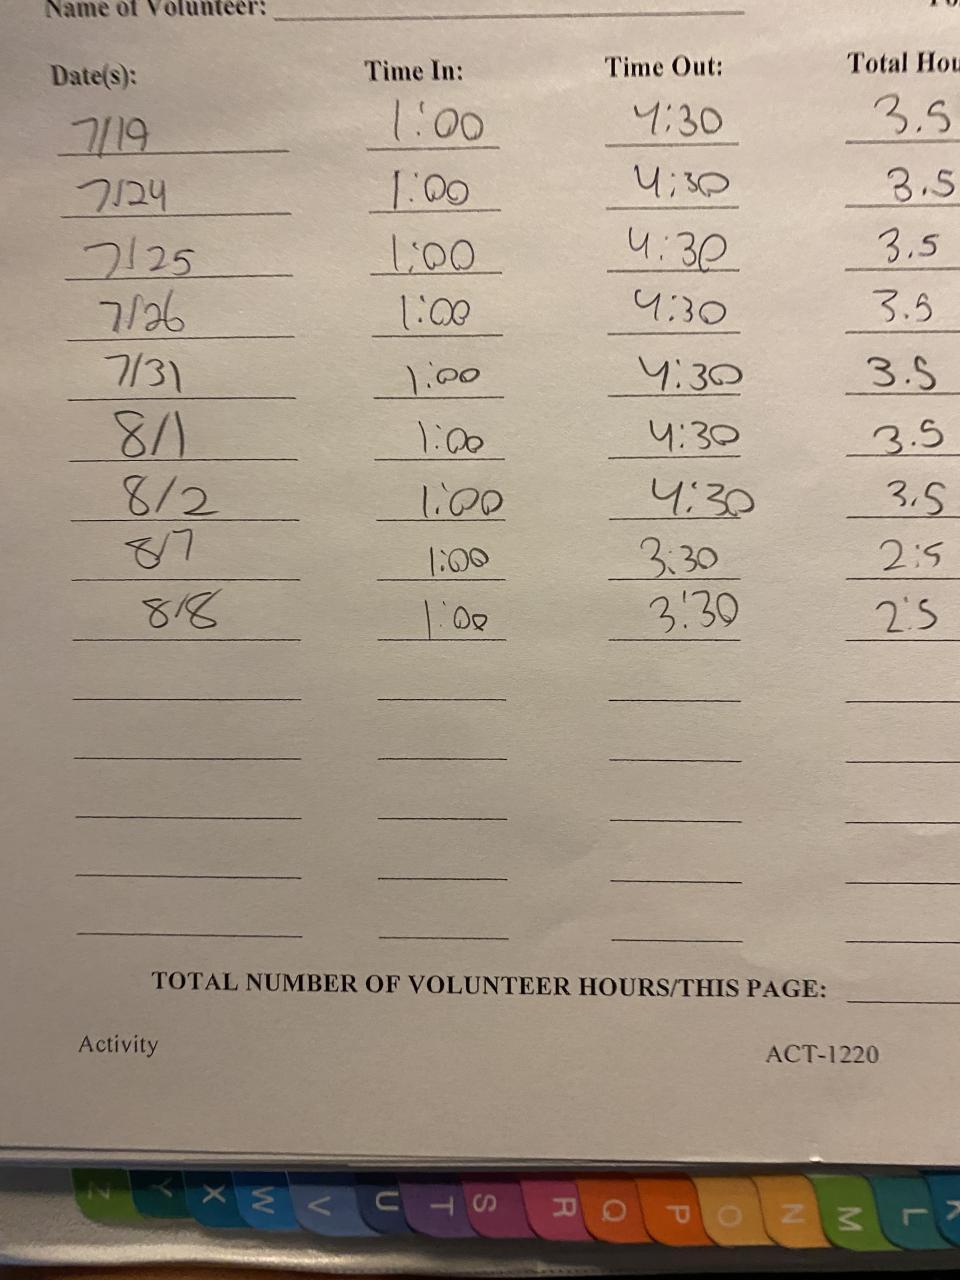 Name of Volunteer:
Date(s): Time In: Time Out: Total Hou
7/19 1:00 4:30 3.5
7/24 1:00 4:30 3.5
7/25 1:00 4:30 3.5
7/26 1:00 4:30 3.5
7/31 1:00 4:30 3.5
8/1 1:00 4:30 3.5
8/2 1:00 4:30 3.5
8/7 1:00 3:30 2:5
8/8 1:00 3:30 2:5
TOTAL NUMBER OF VOLUNTEER HOURS/THIS PAGE:
Activity ACT-1220
Z Y X W V U T S R Q P O N M L K